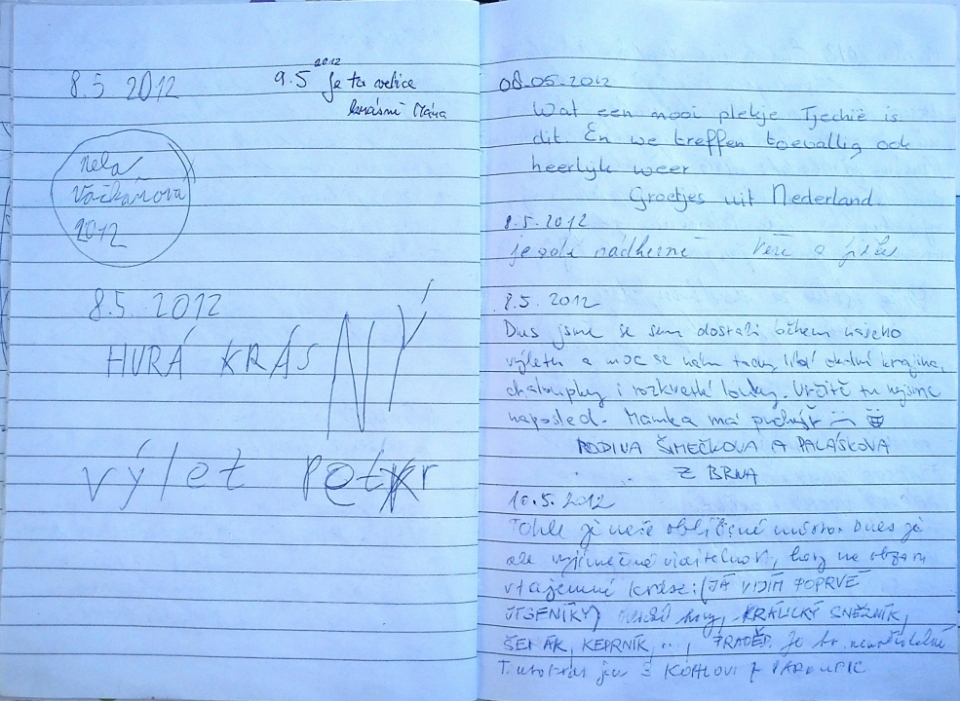 8.5 2012
9.5 2012 Je to velice
krásné Mána
Nela
Vačkářová
2012
8.5 2012
HURÁ KRÁSNÝ
výlet Petr
08-05-2012
Wat een mooi plekje Tjechië is
dit. En we treffen toevallig ook
heerlijk weer
Groetjes uit Nederland.
8.5.2012
je zde nádherně Věře a
8.5. 2012
Dnes jsme se sem dostali během našeho
výletu a moc se nám tady líbí okolní krajina,
chaloupky i rozkvetlé louky. Určitě tu nejsme
naposled. Mamka má puchýř
RODINA ŠIMEČKOVA A PALÁSKOVA
Z BRNA
10.5.2012
Tohle je naše oblíbené místo. Dnes je
ale výjimečná viditelnost, hory na obzoru
v tajemné kráse: (JÁ VIDÍM POPRVÉ
JESENÍKY) hory, KRÁLICKÝ SNĚŽNÍK,
ŠERÁK, KEPRNÍK, .., PRADĚD. Je to
jsu 3 KOHLOVI z PARDUBIC